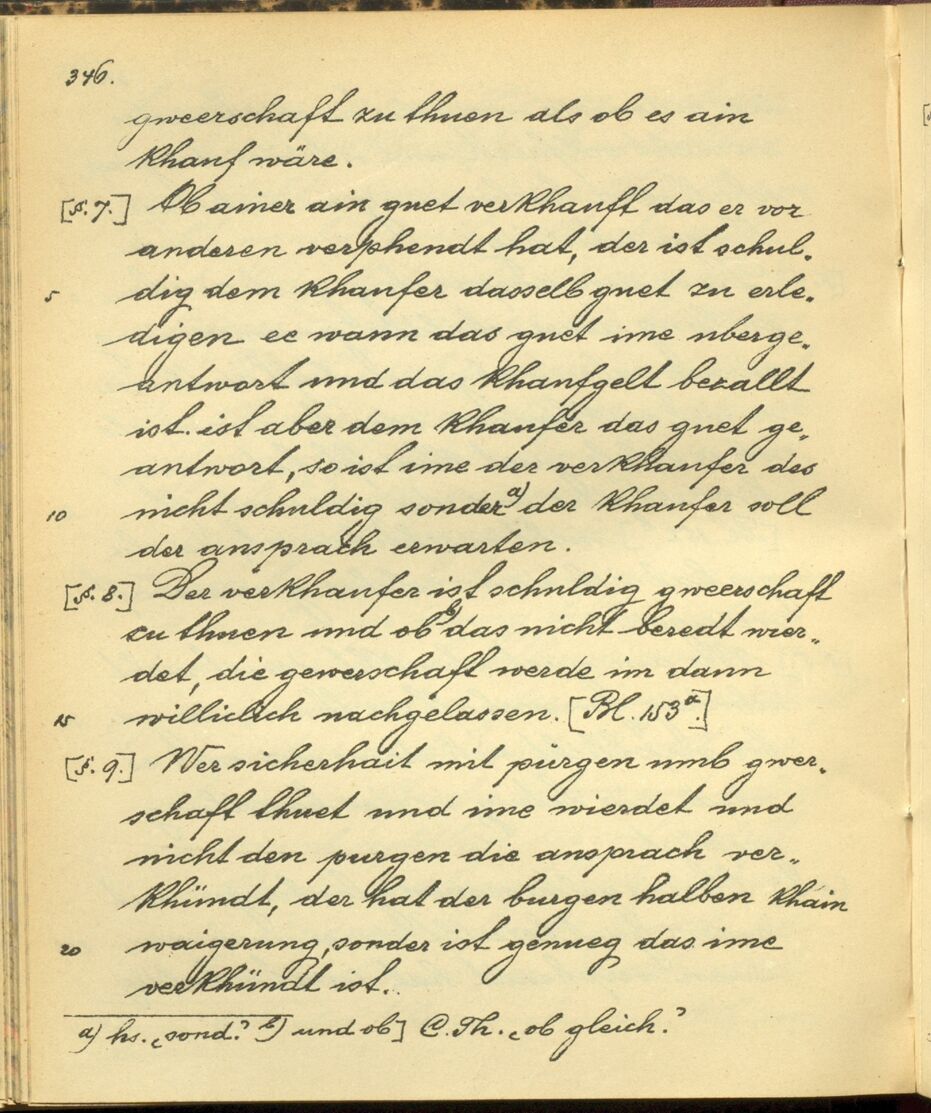 346.
gweerschaft zu thuen als ob es ain
khauf wäre.
[§. 7.] Ob ainer ain guet verkhauft das er vor
anderen verphendt hat, der ist schul-
5 dig dem khaufer dasselb guet zu erle-
digen ee wann das guet ime uberge-
antwort und das khaufgelt bezallt
ist. ist aber dem khaufer das guet ge-
antwort, so ist ime der verkhaufer des
10 nicht schuldig sonder a) der khaufer soll
der ansprach erwarten.
[§. 8.] Der verkhaufer ist schuldig gweerschaft
zu thuen und ob b) das nicht beredt wier-
det, die gewerschaft werde im dann
15 williclich nachgelassen. [Bl. 153a.]
[§. 9.] Wer sicherhait mit pürgen umb gwer-
schaft thuet und ime wierdet und
nicht den purgen die ansprach ver-
khündt, der hat der burgen halben khain
20 waigerung, sonder ist genueg das ime
verkhündt ist.
a) hs. „sond.“ b) und ob] C. Th. „ob gleich.“